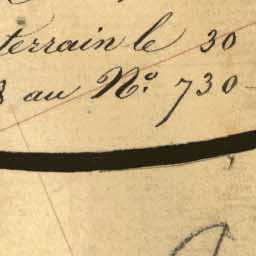 terrain le 30
au No. 730